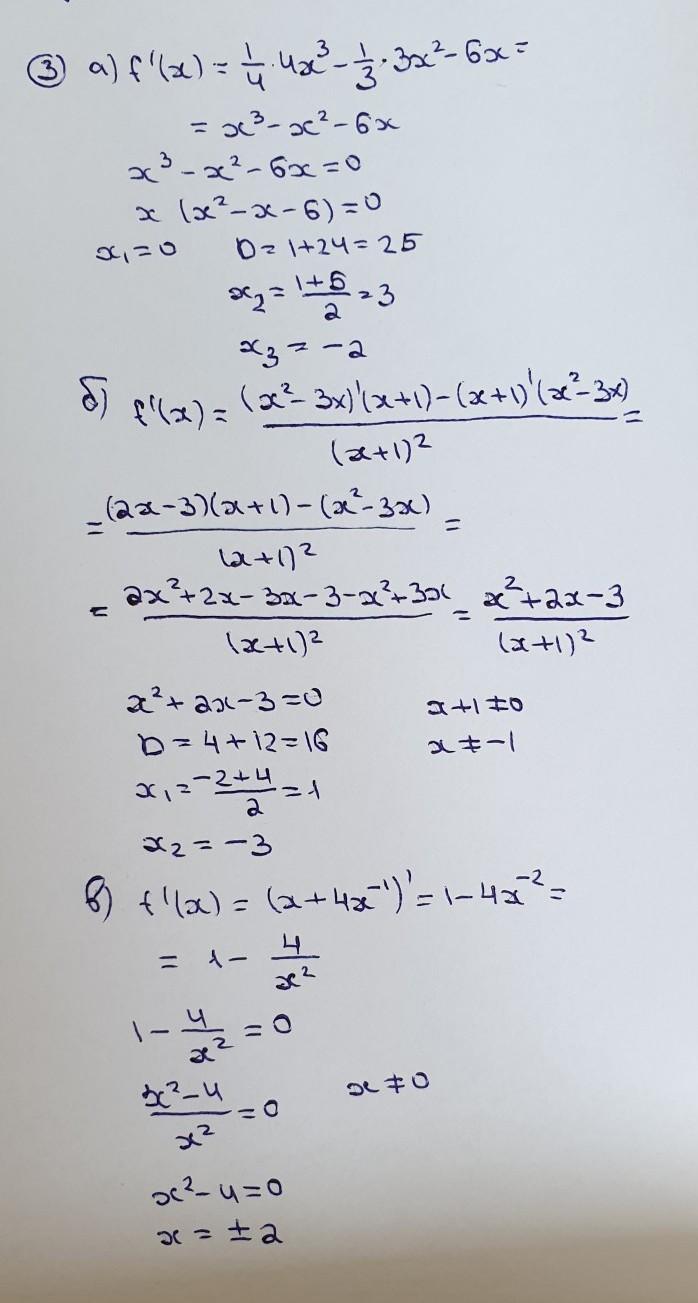 ③ а) f'(x) = 1/4 · 4x³ - 1/3 · 3x² - 6x =
= x³ - x² - 6x
x³ - x² - 6x = 0
x (x² - x - 6) = 0
x₁ = 0 D = 1 + 24 = 25
x₂ = (1+5)/2 = 3
x₃ = -2
б) f'(x) = ((x² - 3x)'(x+1) - (x+1)'(x² - 3x))/(x+1)² =
= ((2x-3)(x+1) - (x² - 3x))/(x+1)² =
= (2x² + 2x - 3x - 3 - x² + 3x)/(x+1)² = (x² + 2x - 3)/(x+1)²
x² + 2x - 3 = 0 x + 1 ≠ 0
D = 4 + 12 = 16 x ≠ -1
x₁ = (-2+4)/2 = 1
x₂ = -3
в) f'(x) = (x + 4x⁻¹)' = 1 - 4x⁻² =
= 1 - 4/x²
1 - 4/x² = 0
(x² - 4)/x² = 0 x ≠ 0
x² - 4 = 0
x = ± 2